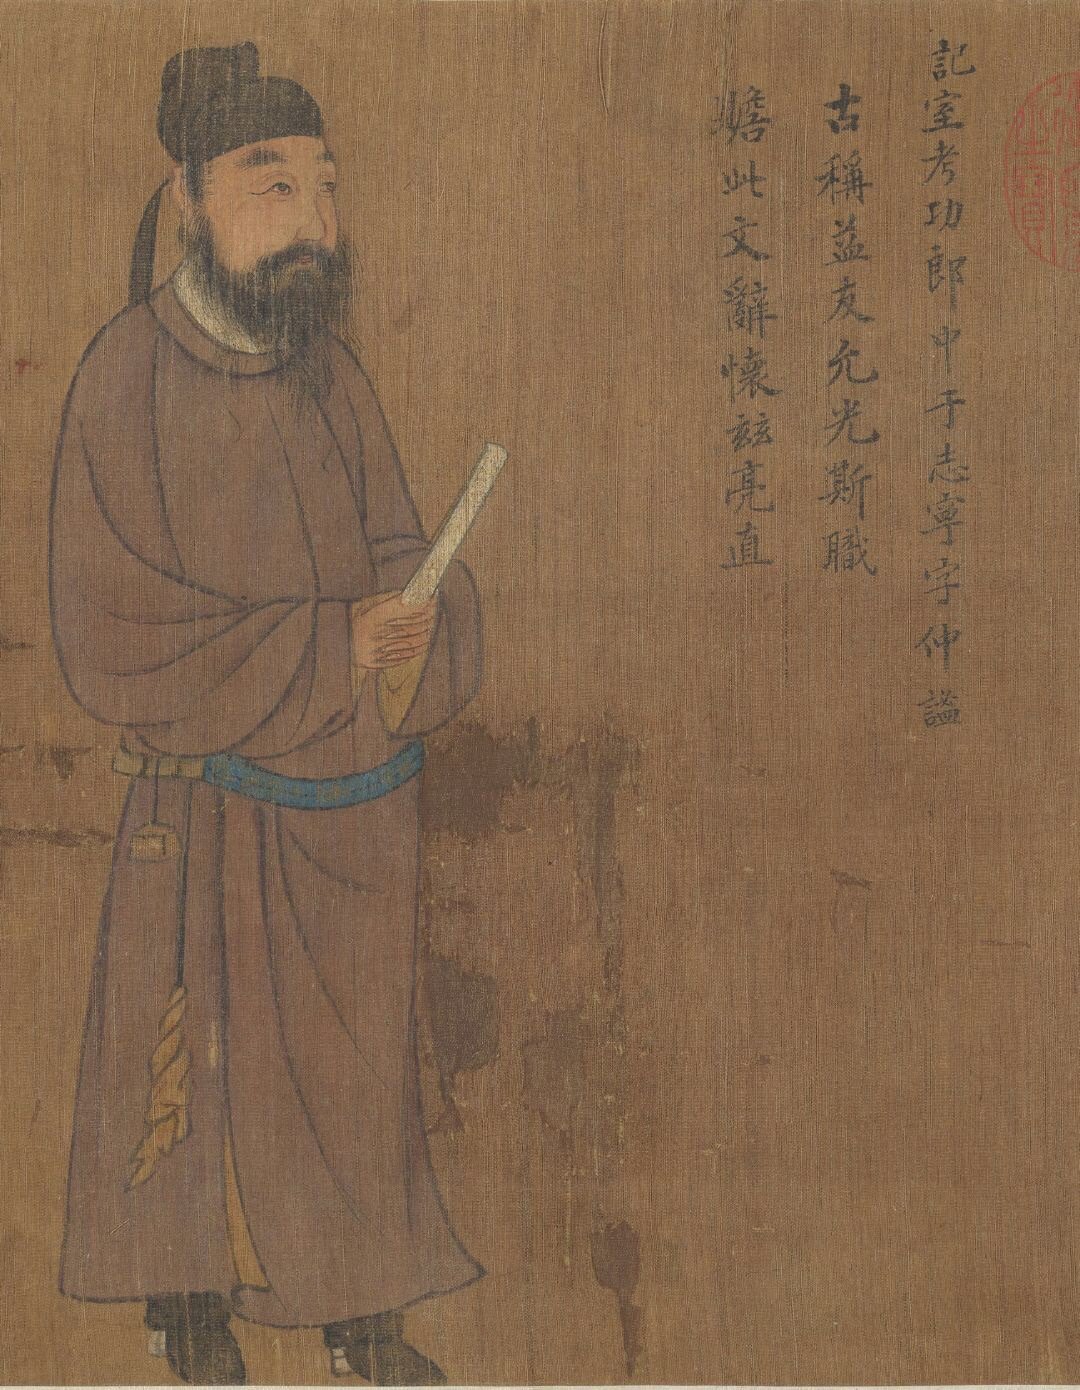 記室考功郎中于志寧字仲謐
古稱益友允光斯職
贍此文辭懷兹亮直